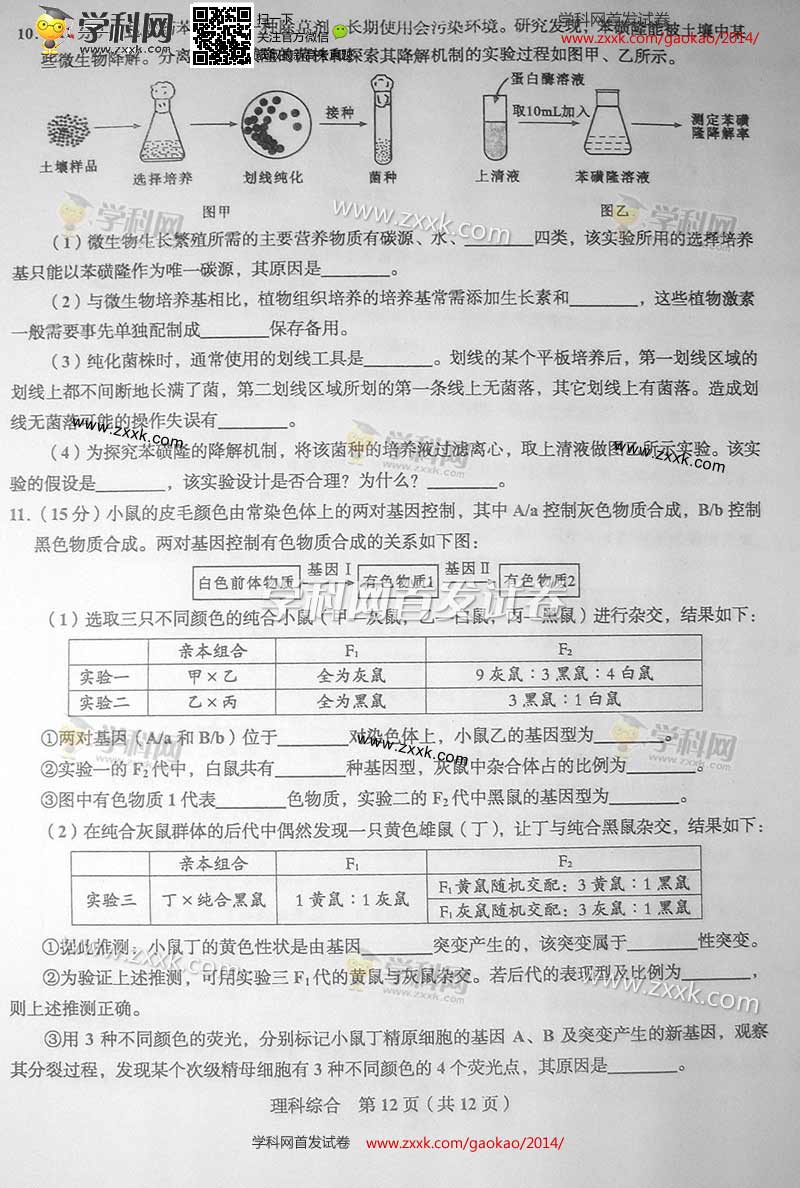 学科网首发试卷
www.zxxk.com/gaokao/2014/
学科网
扫一扫
关注官方微信
10.
长期使用会污染环境。研究发现，苯磺隆能被土壤中某
些微生物降解。分离
探索其降解机制的实验过程如图甲、乙所示。
蛋白酶溶液
接种
取10mL加入
测定苯磺
隆降解率
土壤样品
选择培养
划线纯化
菌种
上清液
苯磺隆溶液
图甲
图乙
学科网
www.zxxk.com
（1）微生物生长繁殖所需的主要营养物质有碳源、水、________四类，该实验所用的选择培养
基只能以苯磺隆作为唯一碳源，其原因是________。
（2）与微生物培养基相比，植物组织培养的培养基常需添加生长素和________，这些植物激素
一般需要事先单独配制成________保存备用。
（3）纯化菌株时，通常使用的划线工具是________。划线的某个平板培养后，第一划线区域的
划线上都不间断地长满了菌，第二划线区域所划的第一条线上无菌落，其它划线上有菌落。造成划
线无菌落可能的操作失误有________。
www.zxxk.com
学科网
（4）为探究苯磺隆的降解机制，将该菌种的培养液过滤离心，取上清液做图乙所示实验。该实
www.zxxk.com
验的假设是________，该实验设计是否合理？为什么？________。
11.（15分）小鼠的皮毛颜色由常染色体上的两对基因控制，其中 A/a 控制灰色物质合成，B/b 控制
黑色物质合成。两对基因控制有色物质合成的关系如下图：
白色前体物质 基因Ⅰ 有色物质1 基因Ⅱ 有色物质2
学科网首发试卷
（1）选取三只不同颜色的纯合小鼠（甲—灰鼠，乙—白鼠，丙—黑鼠）进行杂交，结果如下：
亲本组合 F₁ F₂
实验一 甲×乙 全为灰鼠 9 灰鼠：3 黑鼠：4 白鼠
实验二 乙×丙 全为黑鼠 3 黑鼠：1 白鼠
①两对基因（A/a 和 B/b）位于________对染色体上，小鼠乙的基因型为________。
学科网
www.zxxk.com
学科网
②实验一的 F₂ 代中，白鼠共有________种基因型，灰鼠中杂合体占的比例为________。
③图中有色物质 1 代表________色物质，实验二的 F₂ 代中黑鼠的基因型为________。
（2）在纯合灰鼠群体的后代中偶然发现一只黄色雄鼠（丁），让丁与纯合黑鼠杂交，结果如下：
亲本组合 F₁ F₂
实验三 丁×纯合黑鼠 1 黄鼠：1 灰鼠 F₁黄鼠随机交配：3 黄鼠：1 黑鼠
F₁灰鼠随机交配：3 灰鼠：1 黑鼠
①据此推测：小鼠丁的黄色性状是由基因________突变产生的，该突变属于________性突变。
www.zxxk.com
学科网
www.zxxk.com
②为验证上述推测，可用实验三 F₁ 代的黄鼠与灰鼠杂交。若后代的表现型及比例为________，
则上述推测正确。
③用 3 种不同颜色的荧光，分别标记小鼠丁精原细胞的基因 A、B 及突变产生的新基因，观察
其分裂过程，发现某个次级精母细胞有 3 种不同颜色的 4 个荧光点，其原因是________。
理科综合 第 12 页（共 12 页）
学科网首发试卷 www.zxxk.com/gaokao/2014/